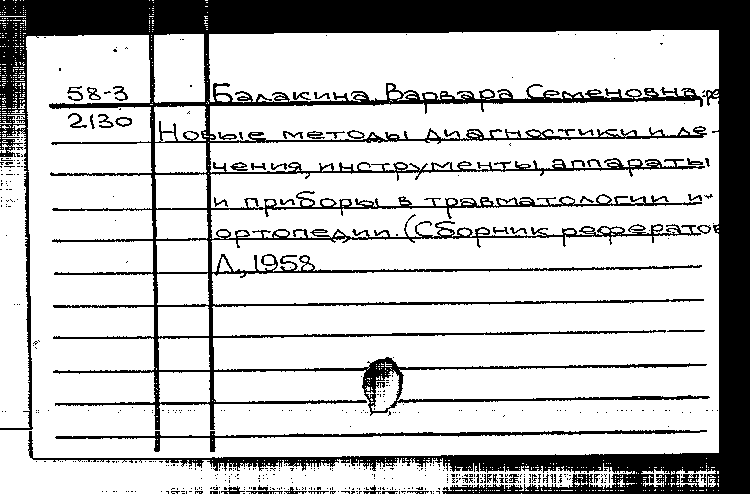 58-3 Балакина, Варвара Семеновна, ре
2130
Новые методы диагностики и ле-
чения, инструменты, аппараты
и приборы в травматологии и
ортопедии. (Сборник рефератов
Л., 1958